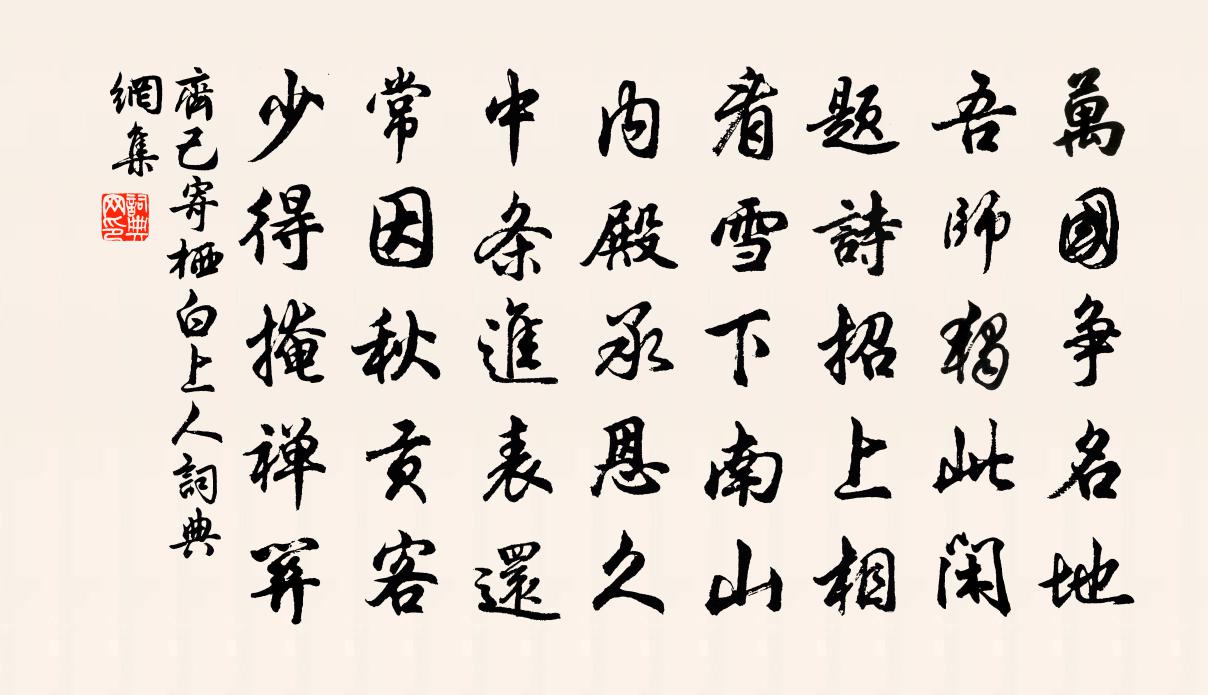 萬國爭名地
吾師獨此閑
題詩招上相
看雪下南山
內殿承恩久
中條進表還
常因秋貢客
少得掩禪關
齊己寄栖白上人詞典
網集
詞典網印